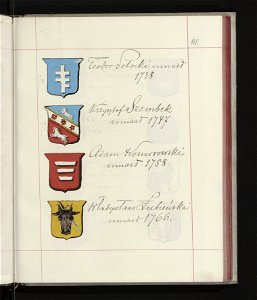 111.
Teodor Potocki umarł
1738.
Krzysztof Szembek
umarł 1747
Adam Komorowski
umarł 1758.
Władysław Łubieński
umarł 1766.